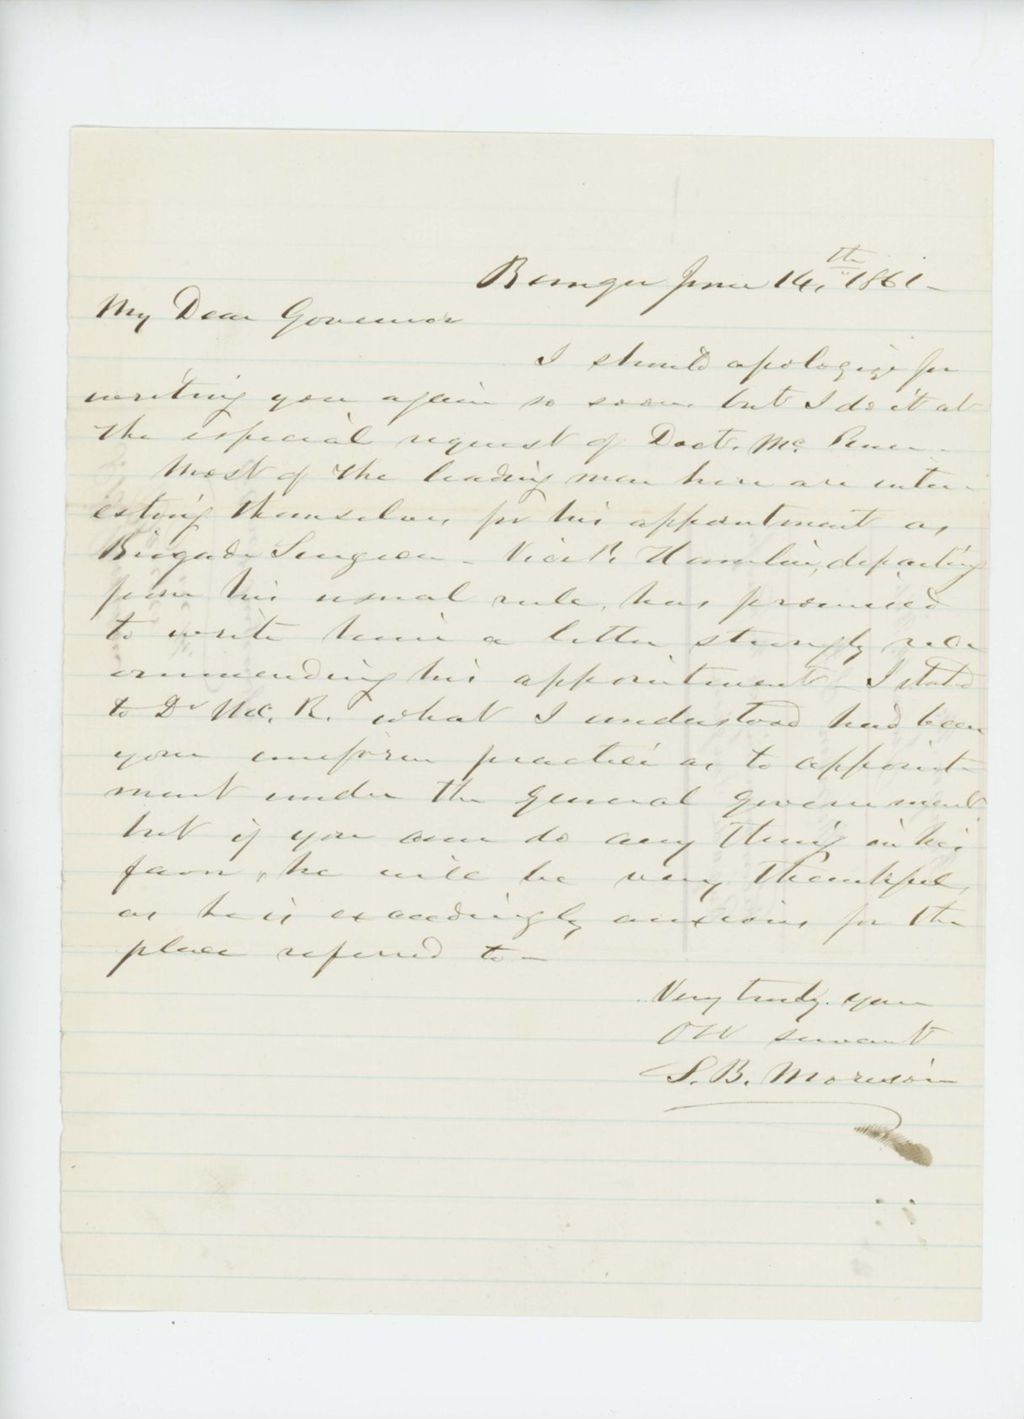 Bangor June 14th, 1861 -
My Dear Governor
I should apologize for
writing you again so soon, but I do it at
the especial request of Doct. Mc.
Most of the leading men here are inter-
esting themselves for his appointment as
Brigade Surgeon - Vice P. Hamlin, departing
from his usual rule, has promised
to write him a letter strongly rec
ommending his appointment - I stated
to Dr Mc. R. what I understood had been
your uniform practice as to appoint
ment under the general government
but if you can do any thing in his
favor, he will be very thankful,
as he is exceedingly anxious for the
place referred to -
Very truly your
Obt servant
S. B. Morison